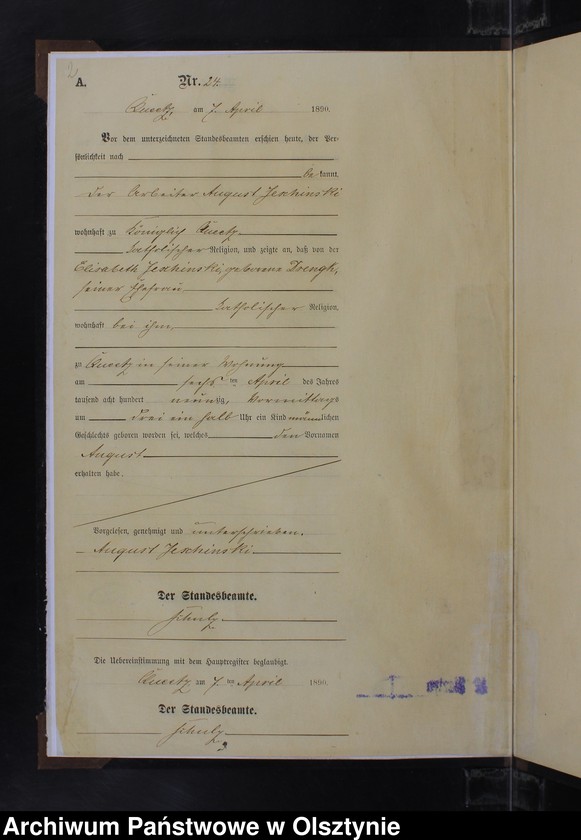 2
A.
Nr. 24
Queetz, am 7. April 1890.
Vor dem unterzeichneten Standesbeamten erschien heute, der Per-
sönlichkeit nach
be kannt,
der Arbeiter August
wohnhaft zu Königlich Queetz
katholischer Religion, und zeigte an, daß von der
Elisabeth geborene
seiner Ehefrau,
katholischer Religion,
wohnhaft bei ihm,
zu Queetz in seiner Wohnung
am sechs ten April des Jahres
tausend acht hundert neunzig, Vormittags
um drei ein halb Uhr ein Kind männlichen
Geschlechts geboren worden sei, welches den Vornamen
August
erhalten habe.
Vorgelesen, genehmigt und unterschrieben.
August
Der Standesbeamte.
Schulz
Die Uebereinstimmung mit dem Hauptregister beglaubigt.
Queetz am 7. ten April 1890.
Der Standesbeamte.
Schulz
Archiwum Państwowe w Olsztynie